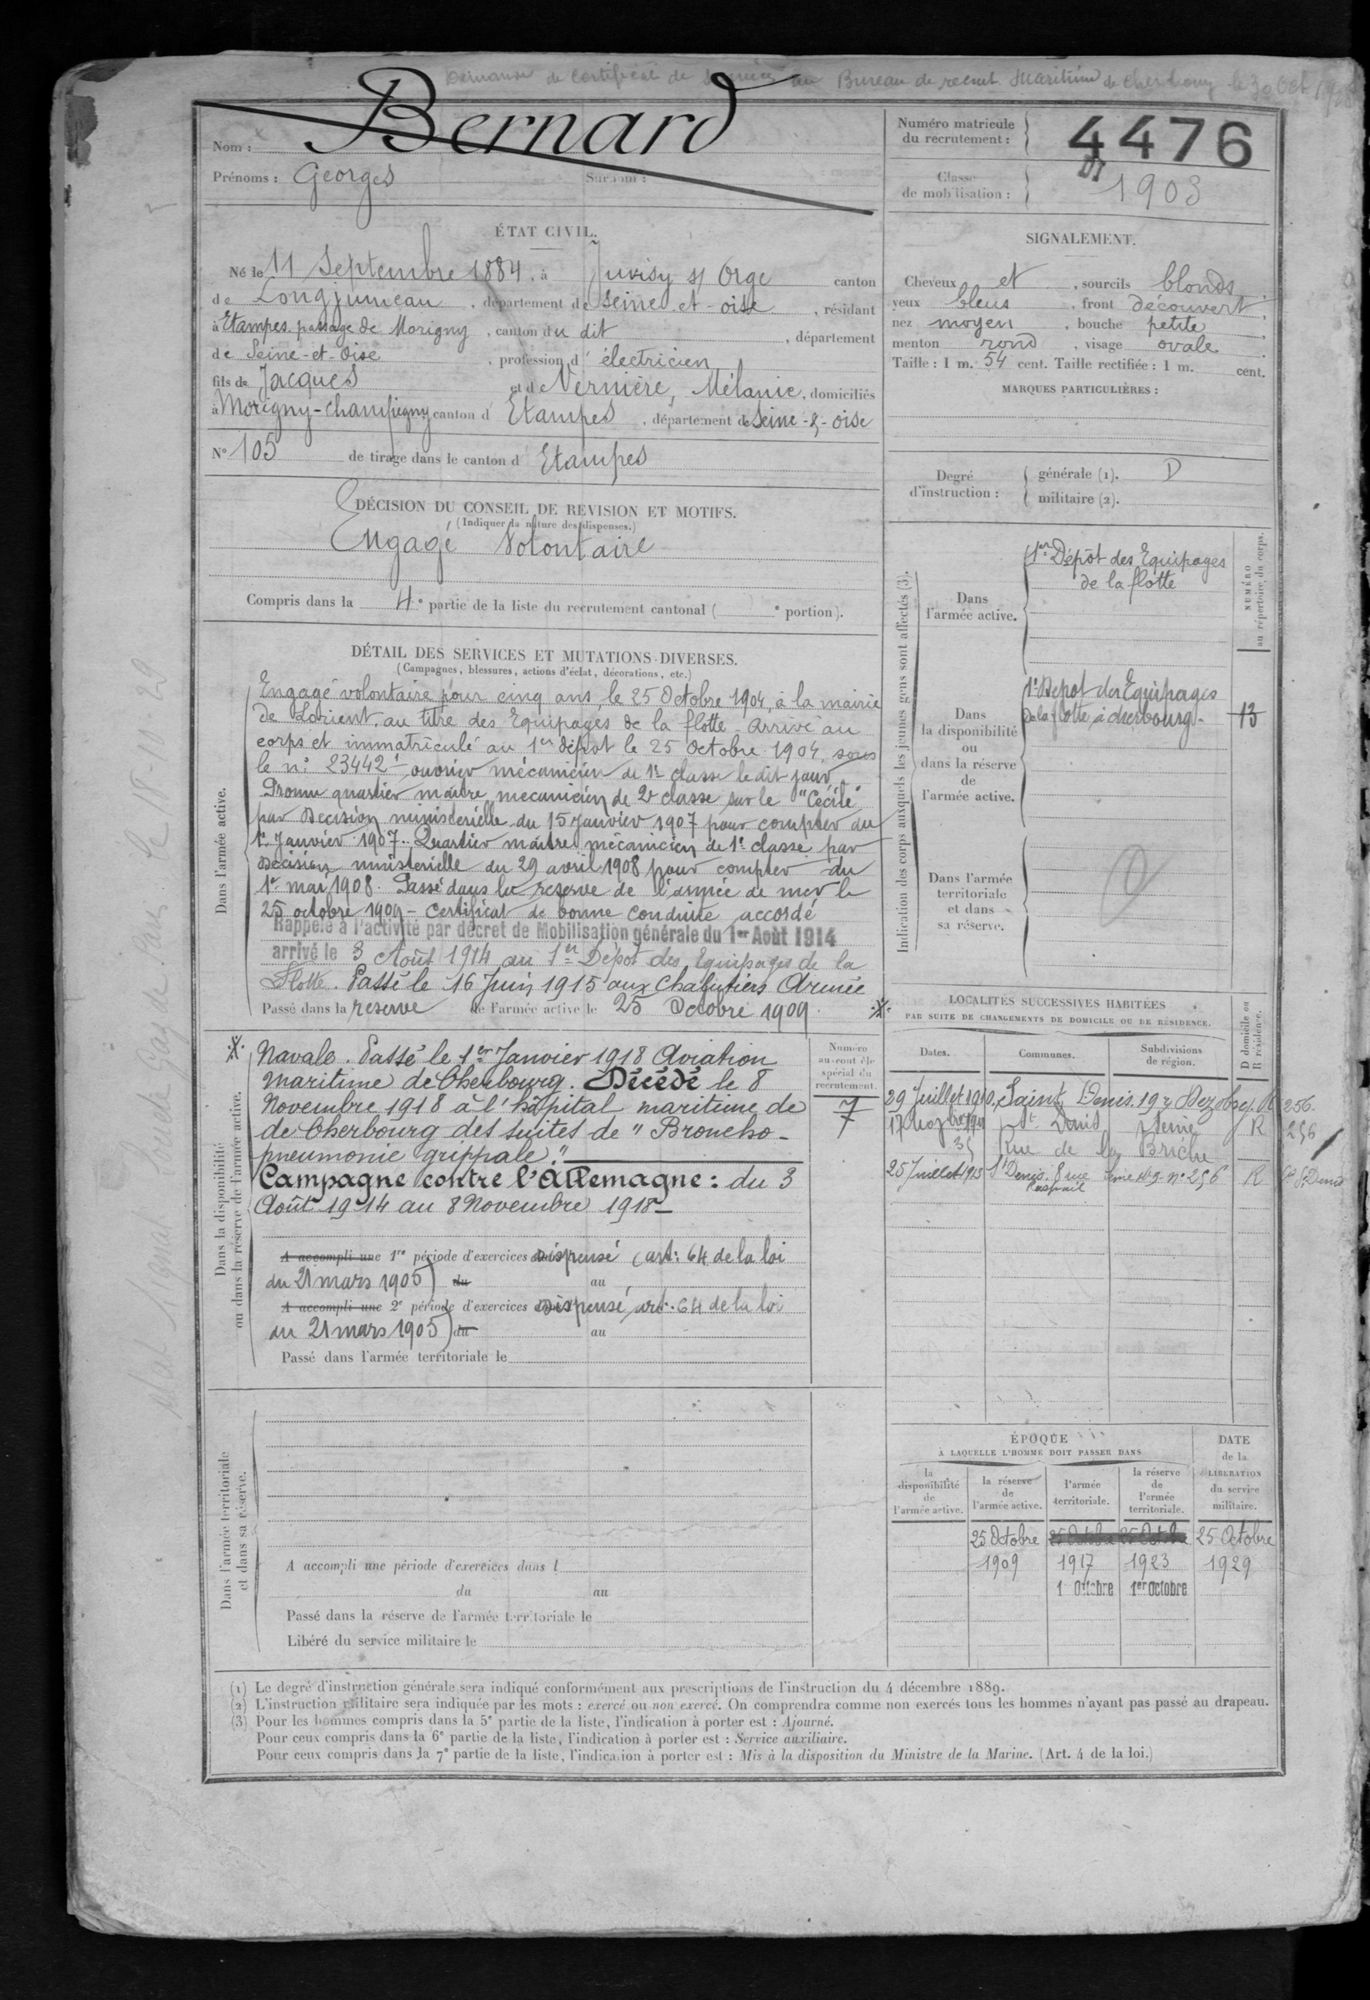 Demande de certificat de au Bureau de recrut. Maritime de Cherbourg le 30 Oct
Nom : Bernard
Prénoms : Georges Surnom :
Numéro matricule du recrutement : 4476
Classe de mobilisation : 1903
ÉTAT CIVIL.
Né le 11 Septembre 1884, à Juvisy s/ Orge canton
de Longjumeau, département de Seine-et-oise, résidant
à Etampes passage de Morigny, canton du dit, département
de Seine-et-Oise, profession d'électricien
fils de Jacques et de Vernière, Mélanie, domiciliés
à Morigny-Champigny canton d'Etampes, département de Seine-&-oise
N° 105 de tirage dans le canton d'Etampes
SIGNALEMENT.
Cheveux et, sourcils blonds,
yeux bleus, front découvert,
nez moyen, bouche petite,
menton rond, visage ovale.
Taille : 1 m. 54 cent. Taille rectifiée : 1 m. cent.
MARQUES PARTICULIÈRES :
Degré d'instruction : générale (1). D
militaire (2).
DÉCISION DU CONSEIL DE REVISION ET MOTIFS.
(Indiquer la nature des dispenses.)
Engagé Volontaire
Compris dans la 4e partie de la liste du recrutement cantonal ( e portion).
DÉTAIL DES SERVICES ET MUTATIONS DIVERSES.
(Campagnes, blessures, actions d'éclat, décorations, etc.)
Dans l'armée active.
Engagé volontaire pour cinq ans, le 25 Octobre 1904, à la mairie
de Lorient, au titre des Equipages de la flotte. Arrivé au
corps et immatriculé au 1er dépôt le 25 Octobre 1904, sous
le n° 23442 ouvrier mécanicien de 1re classe le dit jour.
Promu quartier maître mécanicien de 2e classe sur le "Cécile"
par Décision ministérielle du 15 Janvier 1907 pour compter du
1er Janvier 1907. Quartier maître mécanicien de 1e classe par
décision ministérielle du 29 avril 1908 pour compter du
1er mai 1908. Passé dans la réserve de l'armée de mer le
25 octobre 1909 - Certificat de bonne conduite accordé
Rappelé à l'activité par décret de Mobilisation générale du 1er Août 1914
arrivé le 3 Août 1914 au 1er Dépôt des Equipages de la
Flotte. Passé le 16 Juin 1915 aux Chalutiers Armée
Passé dans la reserve de l'armée active le 25 Octobre 1909.
Dans la disponibilité ou dans la réserve de l'armée active.
Navale. Passé le 1er Janvier 1918 Aviation
Maritime de Cherbourg. Décédé le 8
Novembre 1918 à l'hôpital maritime de
de Cherbourg des suites de "Broncho-
pneumonie grippale".
Campagne contre l'Allemagne : du 3
Août 1914 au 8 Novembre 1918
A accompli une 1re période d'exercices Dispensé (art: 64 de la loi
du 21 mars 1905) du au
A accompli une 2e période d'exercices Dispensé, art. 64 de la loi
du 21 mars 1905) du au
Passé dans l'armée territoriale le
Numéro au contrôle spécial du recrutement.
7
7
Indication des corps auxquels les jeunes gens sont affectés (3).
NUMÉRO au répertoire du corps.
Dans l'armée active.
1er Dépôt des Equipages
de la flotte
Dans la disponibilité ou dans la réserve de l'armée active.
1er Depot des Equipages
de la flotte à Cherbourg - 13
Dans l'armée territoriale et dans sa réserve.
LOCALITÉS SUCCESSIVES HABITÉES
PAR SUITE DE CHANGEMENTS DE DOMICILE OU DE RÉSIDENCE.
Dates. Communes. Subdivisions de région. D domicile ou R résidence.
29 Juillet 1910, Saint Denis. 19 r Dezobry R 256
St Denis Seine R 256
Rue de la Briche
25 Juillet 1913 St Denis. 8 rue Raspail Seine n° 256 R St Denis
Dans l'armée territoriale et dans sa réserve.
A accompli une période d'exercices dans l
du au
Passé dans la réserve de l'armée territoriale le
Libéré du service militaire le
ÉPOQUE À LAQUELLE L'HOMME DOIT PASSER DANS
la disponibilité de l'armée active. la réserve de l'armée active. l'armée territoriale. la réserve de l'armée territoriale. DATE de la LIBÉRATION du service militaire.
25 Octobre 25 Octobre 25 Octobre 25 Octobre
1909 1917 1923 1929
1 Octobre 1er Octobre
(1) Le degré d'instruction générale sera indiqué conformément aux prescriptions de l'instruction du 4 décembre 1889.
(2) L'instruction militaire sera indiquée par les mots : exercé ou non exercé. On comprendra comme non exercés tous les hommes n'ayant pas passé au drapeau.
(3) Pour les hommes compris dans la 5e partie de la liste, l'indication à porter est : Ajourné.
Pour ceux compris dans la 6e partie de la liste, l'indication à porter est : Service auxiliaire.
Pour ceux compris dans la 7e partie de la liste, l'indication à porter est : Mis à la disposition du Ministre de la Marine. (Art. 4 de la loi.)